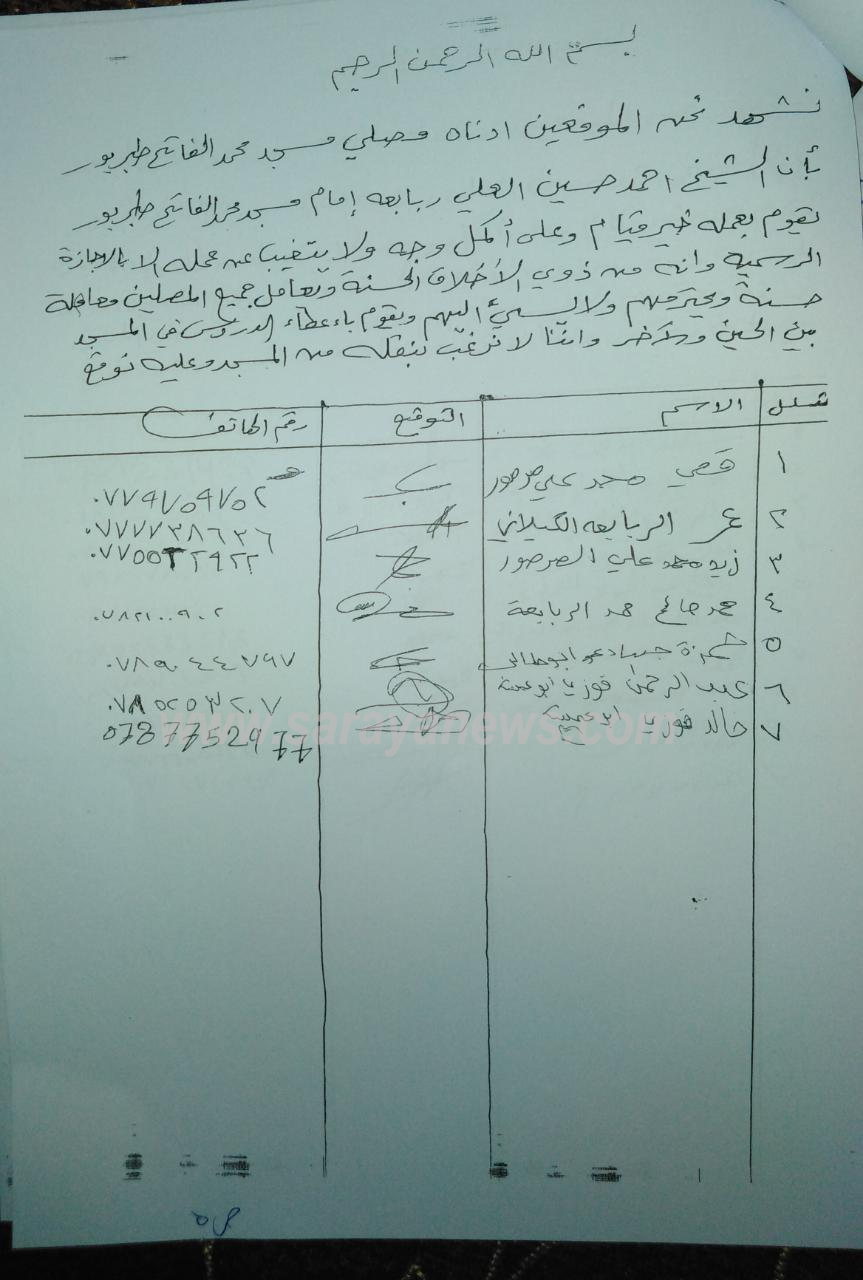 بسم الله الرحمن الرحيم
نشهد نحن الموقعين ادناه مصلي مسجد محمد الفاتح طبربور
بأن الشيخ احمد حسين العلي ربابعه إمام مسجد محمد الفاتح طبربور
يقوم بعمله خير قيام وعلى أكمل وجه ولا يتغيب عن عمله الا بالاجازة
الرسمية وانه من ذوي الأخلاق الحسنة ويعامل جميع المصلين معاملة
حسنة ويحترمهم ولا يسيئ اليهم ويقوم باعطاء الدروس في المسجد
بين الحين والآخر واننا لا نرغب بنقله من المسجد وعليه نوقع
تسلسل الاسم التوقيع رقم الهاتف
١ قصي محمد علي صرصور ٠٧٧٩٧٥٩٧٥٢
٢ عمر الربابعه الكيلاني ٠٧٧٧٧٣٨٦٣٦
٣ زيد محمد علي الصرصور ٠٧٧٥٥٢٢٩٢٢
٤ محمد صالح حمد الربابعة ٠٧٨٢١٠٠٩٠٢
٥ حمزة ٠٧٨٩٠٤٤٧٩٧
٦ عبد الرحمن فوزي ٠٧٨٥٢٥٣٢٠٧
٧ خالد فوزي 0787752977
www.sarayanews.com